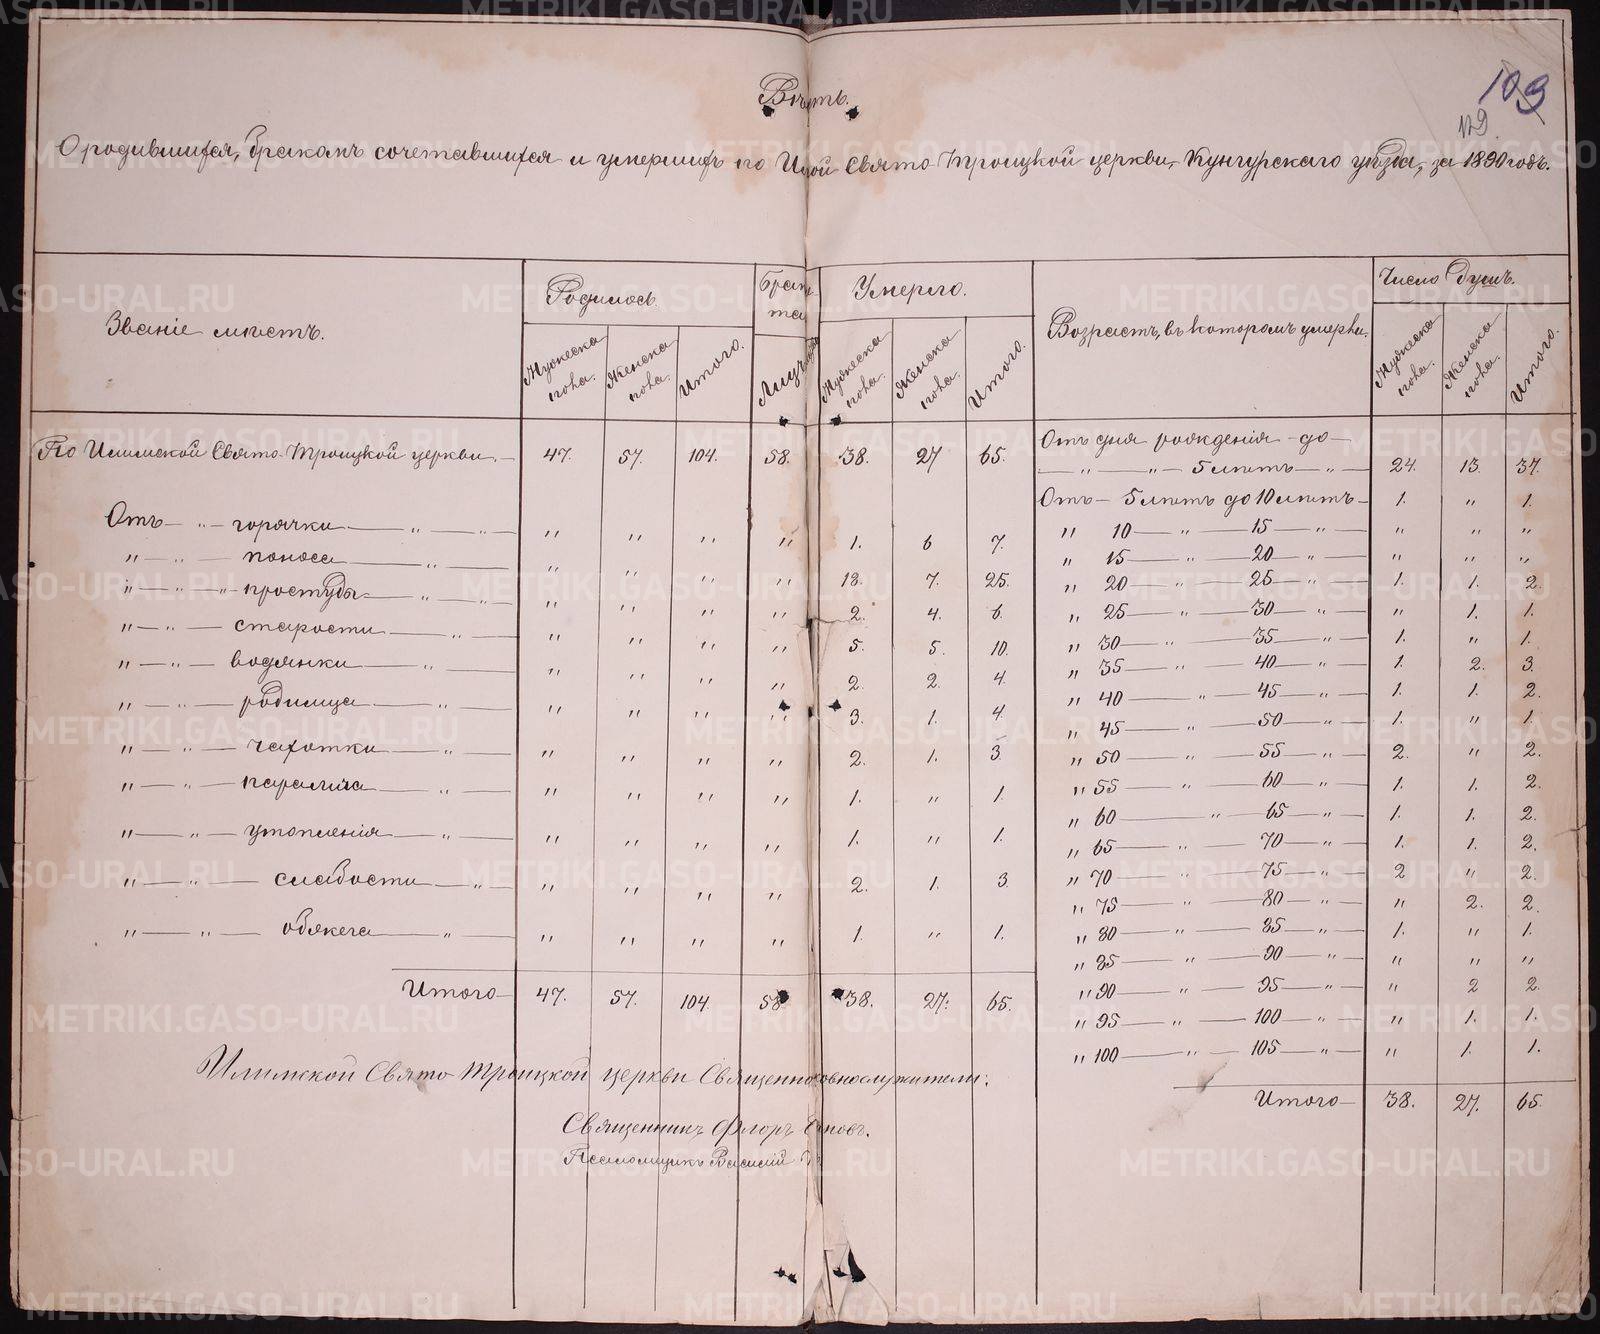 109
119.
О родившихся, бракомъ сочетавшихся и умершихъ по Свято-Троицкой церкви, Кунгурскаго уѣзда, за 1890 годъ.
Званіе мѣстъ. Родилось. Умерло. Возрастъ, въ которомъ умерли. Число душъ.
Мужеска пола. Женска пола. Итого. Мужеска пола. Женска пола. Итого. Мужеска пола. Женска пола. Итого.
По Илимской Свято-Троицкой церкви. — 47. 57. 104. 58. 38. 27 65.
Отъ — „ — горячки — „ — „ — „ „ „ „ 1. 6 7.
„ — „ — поноса — „ — „ „ „ „ 18. 7. 25.
„ — „ — „ — простуды — „ — „ — „ „ „ „ 2. 4. 6.
„ — „ — старости — „ — „ „ „ „ 5. 5. 10.
„ — „ — водянки — „ — „ „ „ „ 2. 2. 4.
„ — „ — родимца — „ — „ „ „ „ 3. 1. 4.
„ — „ — чахотки — „ — „ „ „ „ 2. 1. 3
„ — „ — паралича — „ — „ „ „ „ 1. „ 1.
„ — „ — утопленія — „ — „ „ „ „ 1. „ 1.
„ — „ — слабости — „ — „ „ „ „ 2. 1. 3.
„ — „ — обжега — „ — „ „ „ „ 1. „ 1.
Итого — 47. 57. 104. 58. 38. 27. 65.
Отъ дня рожденія до —
— „ — „ — 5 лѣтъ — „ — 24. 13. 37.
Отъ — 5 лѣтъ до 10 лѣтъ — 1. „ 1.
„ 10 — „ — 15 — „ — „ „ „
„ 15 — „ — 20 — „ — „ „ „
„ 20 — „ — 25 — „ — 1. 1. 2.
„ 25 — „ — 30 — „ — „ 1. 1.
„ 30 — „ — 35 — „ — 1. „ 1.
„ 35 — „ — 40 — „ — 1. 2. 3.
„ 40 — „ — 45 — „ — 1. 1. 2.
„ 45 — „ — 50 — „ — 1. „ 1.
„ 50 — „ — 55 — „ — 2. „ 2.
„ 55 — „ — 60 — „ — 1. 1. 2.
„ 60 — „ — 65 — „ — 1. 1. 2.
„ 65 — „ — 70 — „ — 1. 1. 2.
„ 70 — „ — 75 — „ — 2 „ 2.
„ 75 — „ — 80 — „ — „ 2. 2.
„ 80 — „ — 85 — „ — 1. „ 1.
„ 85 — „ — 90 — „ — „ „ „
„ 90 — „ — 95 — „ — „ 2 2.
„ 95 — „ — 100 — „ — „ 1. 1.
„ 100 — „ — 105 — „ — „ 1. 1.
Итого — 38. 27. 65.
Илимской Свято Троицкой церкви
Священникъ Флоръ
Псаломщикъ Василій
METRIKI.GASO-URAL.RU